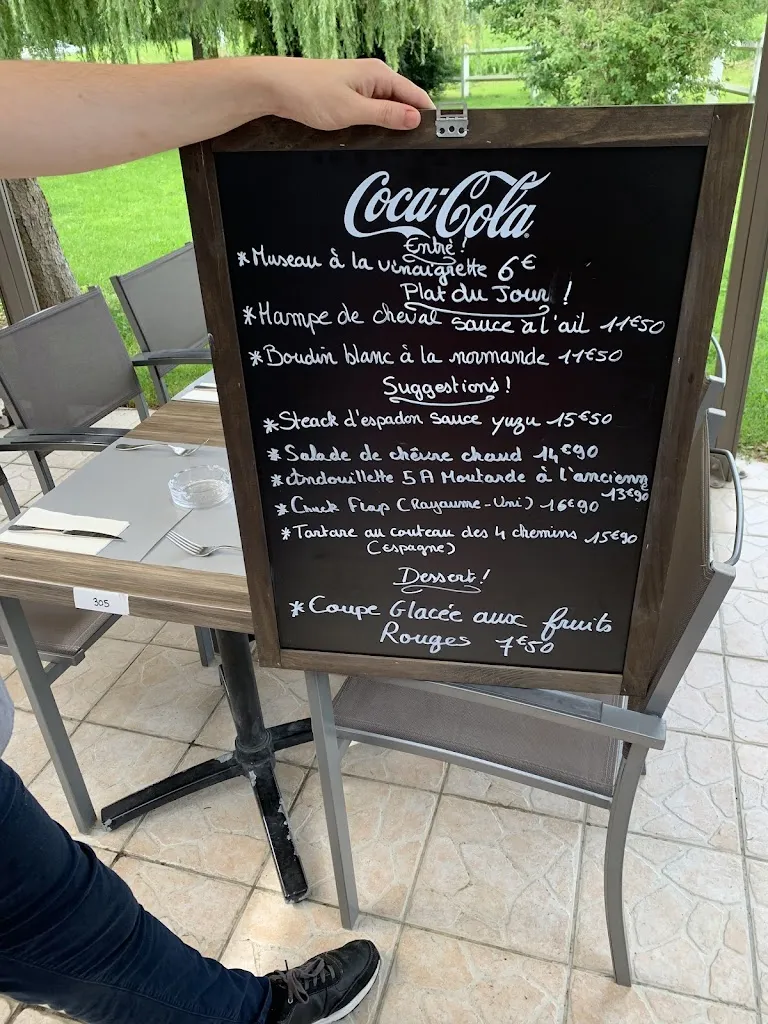 Coca-Cola
Entré !
*Museau à la vinaigrette 6€
Plat du Jour !
*Hampe de cheval sauce à l'ail 11€50
*Boudin blanc à la normande 11€50
Suggestions !
*Steack d'espadon sauce yuzu 15€50
*Salade de chèvre chaud 14€90
*Andouillette 5A Moutarde à l'ancienne
13€90
*Chuck Flap (Rayaume-Uni) 16€90
*Tartare au couteau des 4 chemins 15€90
(Espagne)
Dessert !
*Coupe Glacée aux fruits
Rouges 7€50
305